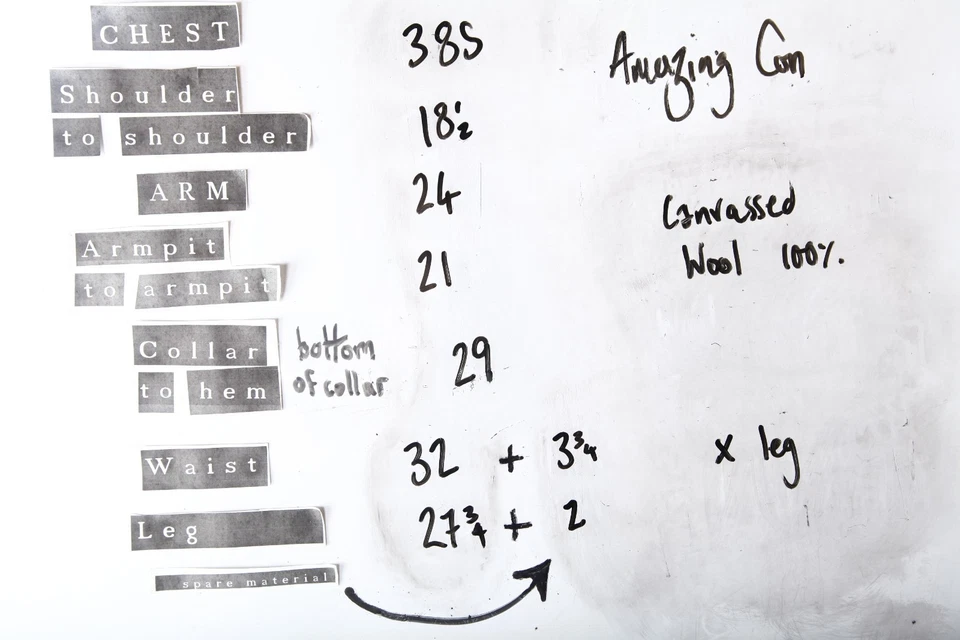 CHEST 38S Amazing Con
Shoulder
to shoulder 18½
ARM 24 Canvassed
Wool 100%.
Armpit
to armpit 21
Collar bottom
to hem of collar 29
Waist 32 + 3¾ x leg
Leg 27¾ + 2
spare material